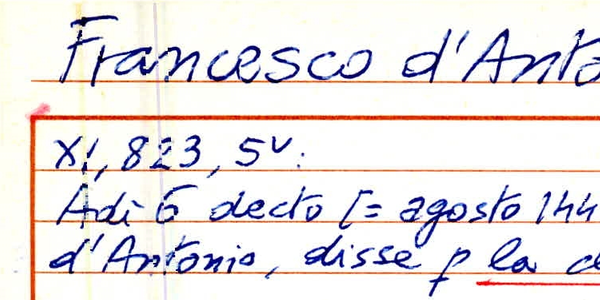 Francesco d'Anto
XI, 823, 5v:
Adì 6 decto [= agosto 144
d'Antonio, disse p la